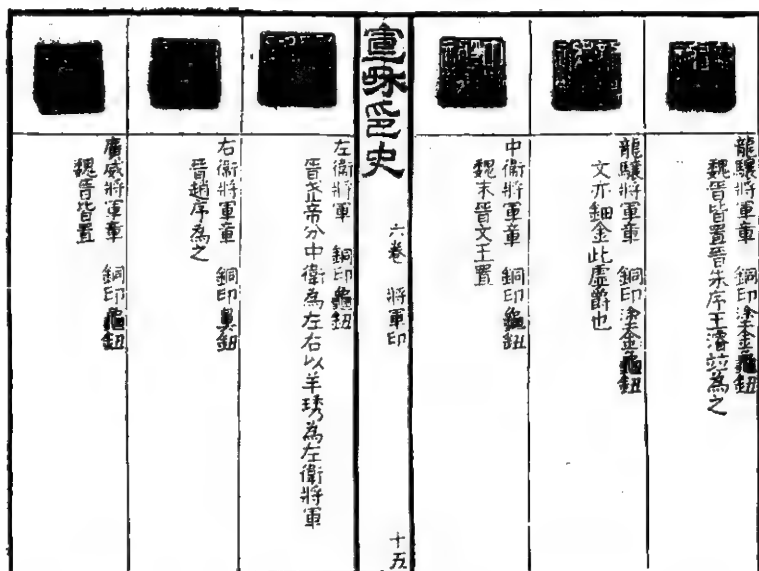 龍驤將軍章 銅印塗金龜鈕
魏晉皆置晉朱序王濬竝為之
龍驤將軍章 銅印塗金龜鈕
文亦鈿金此虛爵也
中衛將軍章 銅印龜鈕
魏末晉文王置
宣和印史
六卷 將軍印
十五
左衛將軍 銅印龜鈕
晉武帝分中衛為左右以羊琇為左衛將軍
右衛將軍章 銅印鼻鈕
晉趙序為之
廣威將軍章 銅印龜鈕
魏晉皆置